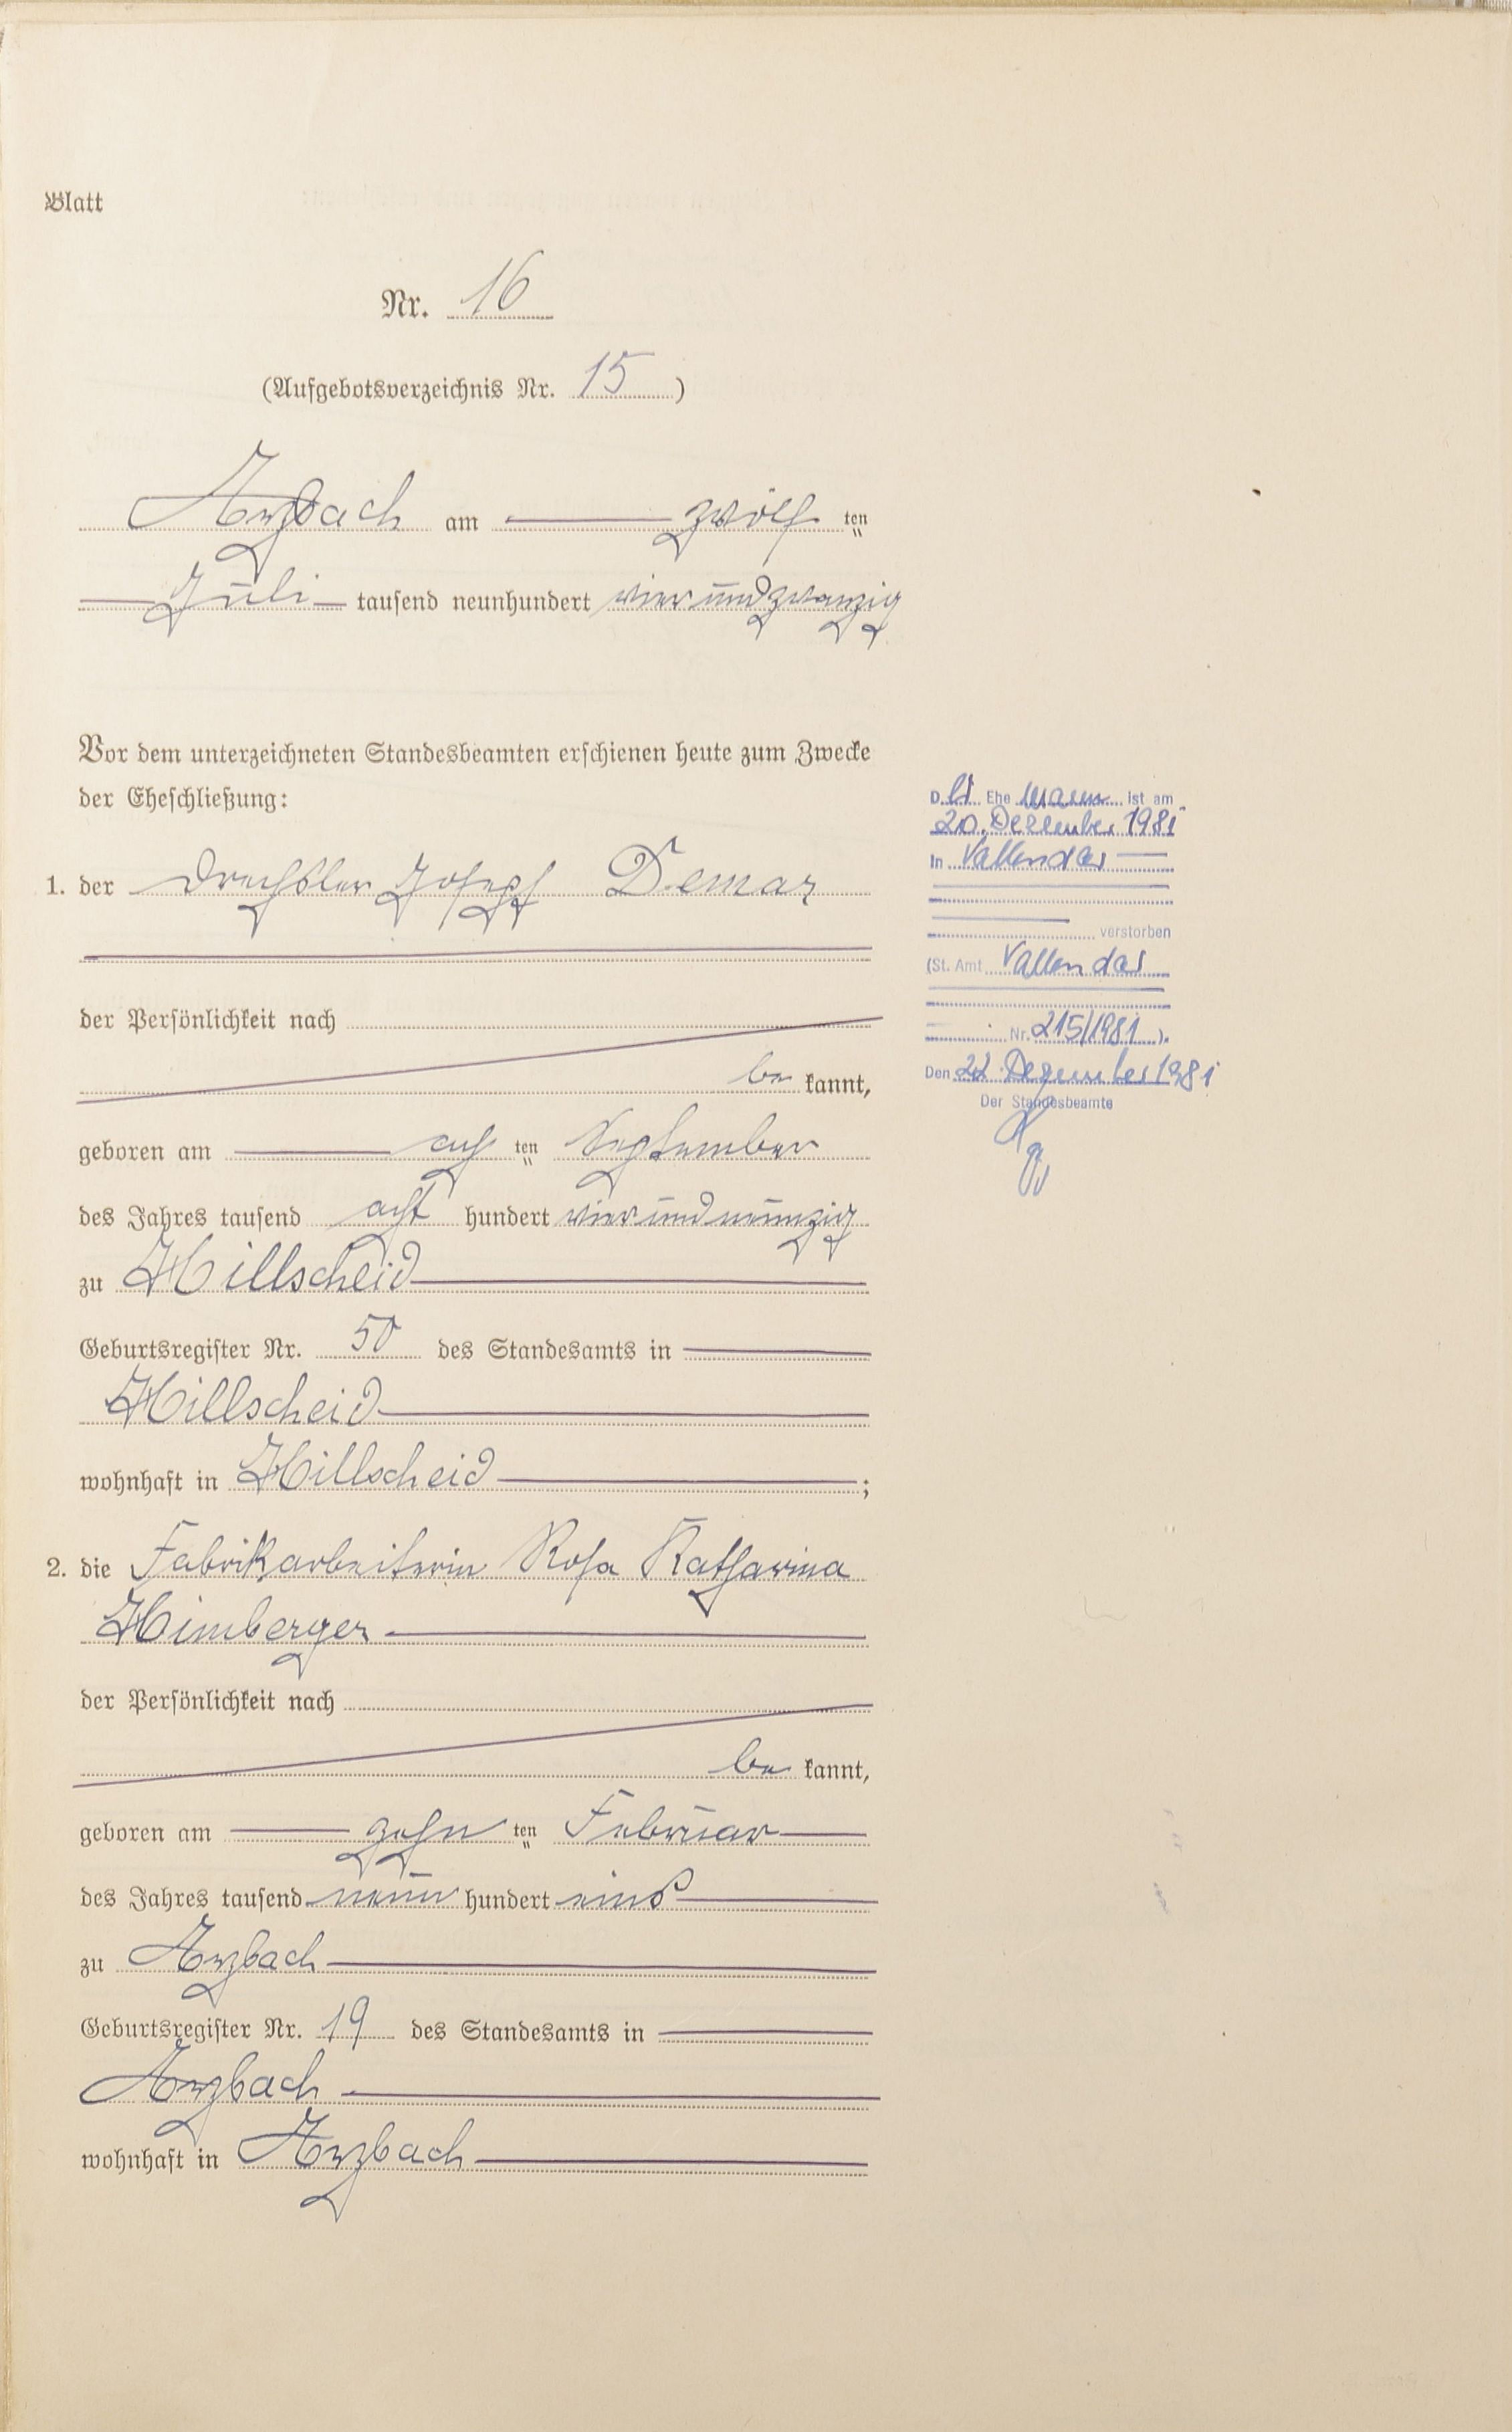 Blatt
Nr. 16
(Aufgebotsverzeichnis Nr. 15)
Arzbach am zwölf ten
Juli tausend neunhundert vierundzwanzig
Vor dem unterzeichneten Standesbeamten erschienen heute zum Zwecke
der Eheschließung:
1. der Drechsler Josef Demar
der Persönlichkeit nach
be kannt,
geboren am ach ten September
des Jahres tausend acht hundert vierundneunzig
zu Hillscheid
Geburtsregister Nr. 50 des Standesamts in
Hillscheid
wohnhaft in Hillscheid ;
2. die Fabrikarbeiterin Rosa Katharina
Himberger
der Persönlichkeit nach
be kannt,
geboren am zehn ten Februar
des Jahres tausend neun hundert eins
zu Arzbach
Geburtsregister Nr. 19 des Standesamts in
Arzbach
wohnhaft in Arzbach
Der Ehe mann ist am
20. Dezember 1981
in Vallendar
verstorben
(St. Amt Vallendar
Nr. 215/1981 ).
Den 22. Dezember 1981
Der Standesbeamte